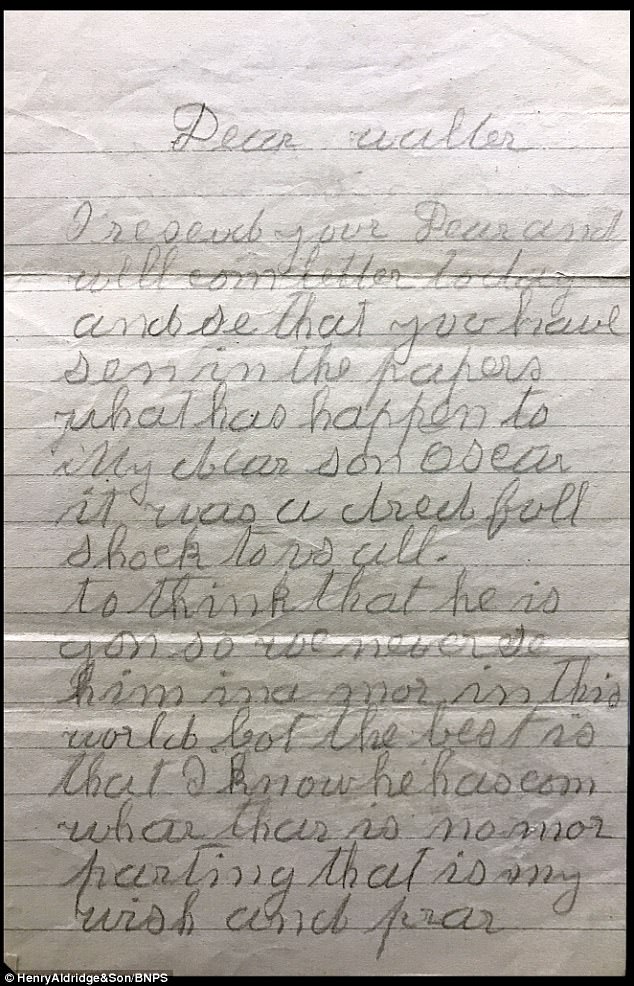 Dear walter
I reseved your Dear and
well com letter today
and se that you have
sen in the papers
what has happen to
My dear son Oscar
it was a dred full
shock to us all.
to think that he is
gon so we never se
him ina mor in this
world bot the best is
that I know he has com
whar thar is no mor
parting that is my
wish and prar
© HenryAldridge&Son/BNPS